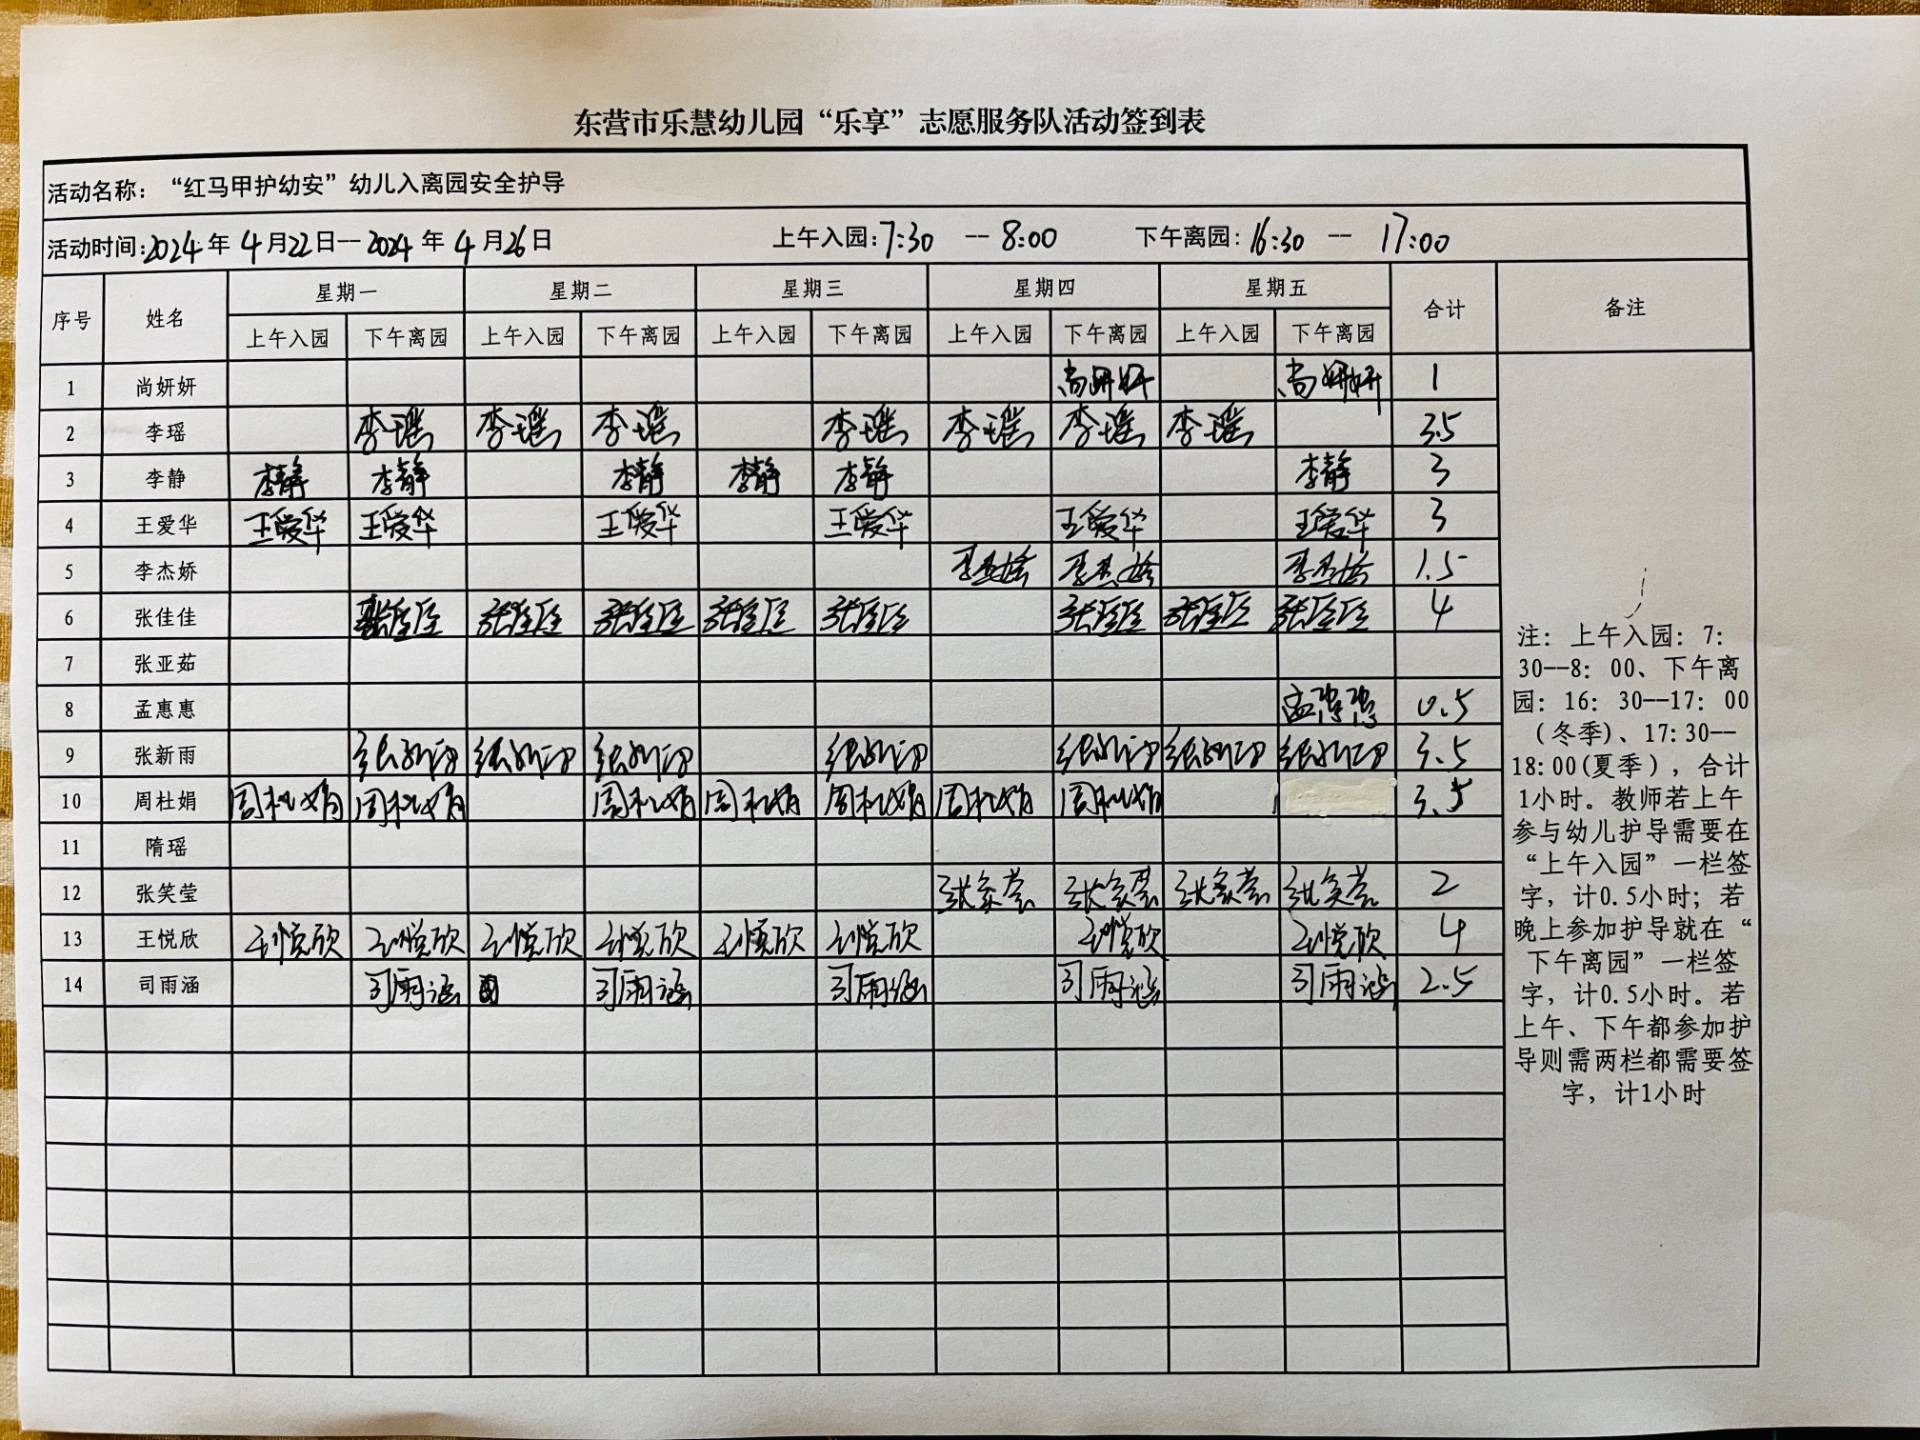 东营市乐慧幼儿园“乐享”志愿服务队活动签到表
活动名称：“红马甲护幼安”幼儿入离园安全护导
活动时间:2024年4月22日--2024年4月26日 上午入园:7:30 -- 8:00 下午离园:16:30 -- 17:00
序号 姓名 星期一 星期二 星期三 星期四 星期五 合计 备注
上午入园 下午离园 上午入园 下午离园 上午入园 下午离园 上午入园 下午离园 上午入园 下午离园
1 尚妍妍 尚妍妍 尚妍妍 1
2 李瑶 李瑶 李瑶 李瑶 李瑶 李瑶 李瑶 李瑶 3.5
3 李静 李静 李静 李静 李静 李静 李静 3
4 王爱华 王爱华 王爱华 王爱华 王爱华 王爱华 王爱华 3
5 李杰娇 李杰娇 李杰娇 李杰娇 1.5
6 张佳佳 张佳佳 张佳佳 张佳佳 张佳佳 张佳佳 张佳佳 张佳佳 张佳佳 4
7 张亚茹
8 孟惠惠 孟惠惠 0.5
9 张新雨 张新雨 张新雨 张新雨 张新雨 张新雨 张新雨 张新雨 3.5
10 周杜娟 周杜娟 周杜娟 周杜娟 周杜娟 周杜娟 周杜娟 周杜娟 3.5
11 隋瑶
12 张笑莹 张笑莹 张笑莹 张笑莹 张笑莹 2
13 王悦欣 王悦欣 王悦欣 王悦欣 王悦欣 王悦欣 王悦欣 王悦欣 王悦欣 4
14 司雨涵 司雨涵 司雨涵 司雨涵 司雨涵 司雨涵 2.5
注：上午入园：7:
30--8：00、下午离
园：16：30--17：00
（冬季）、17:30--
18:00(夏季），合计
1小时。教师若上午
参与幼儿护导需要在
“上午入园”一栏签
字，计0.5小时；若
晚上参加护导就在“
下午离园”一栏签
字，计0.5小时。若
上午、下午都参加护
导则需两栏都需要签
字，计1小时